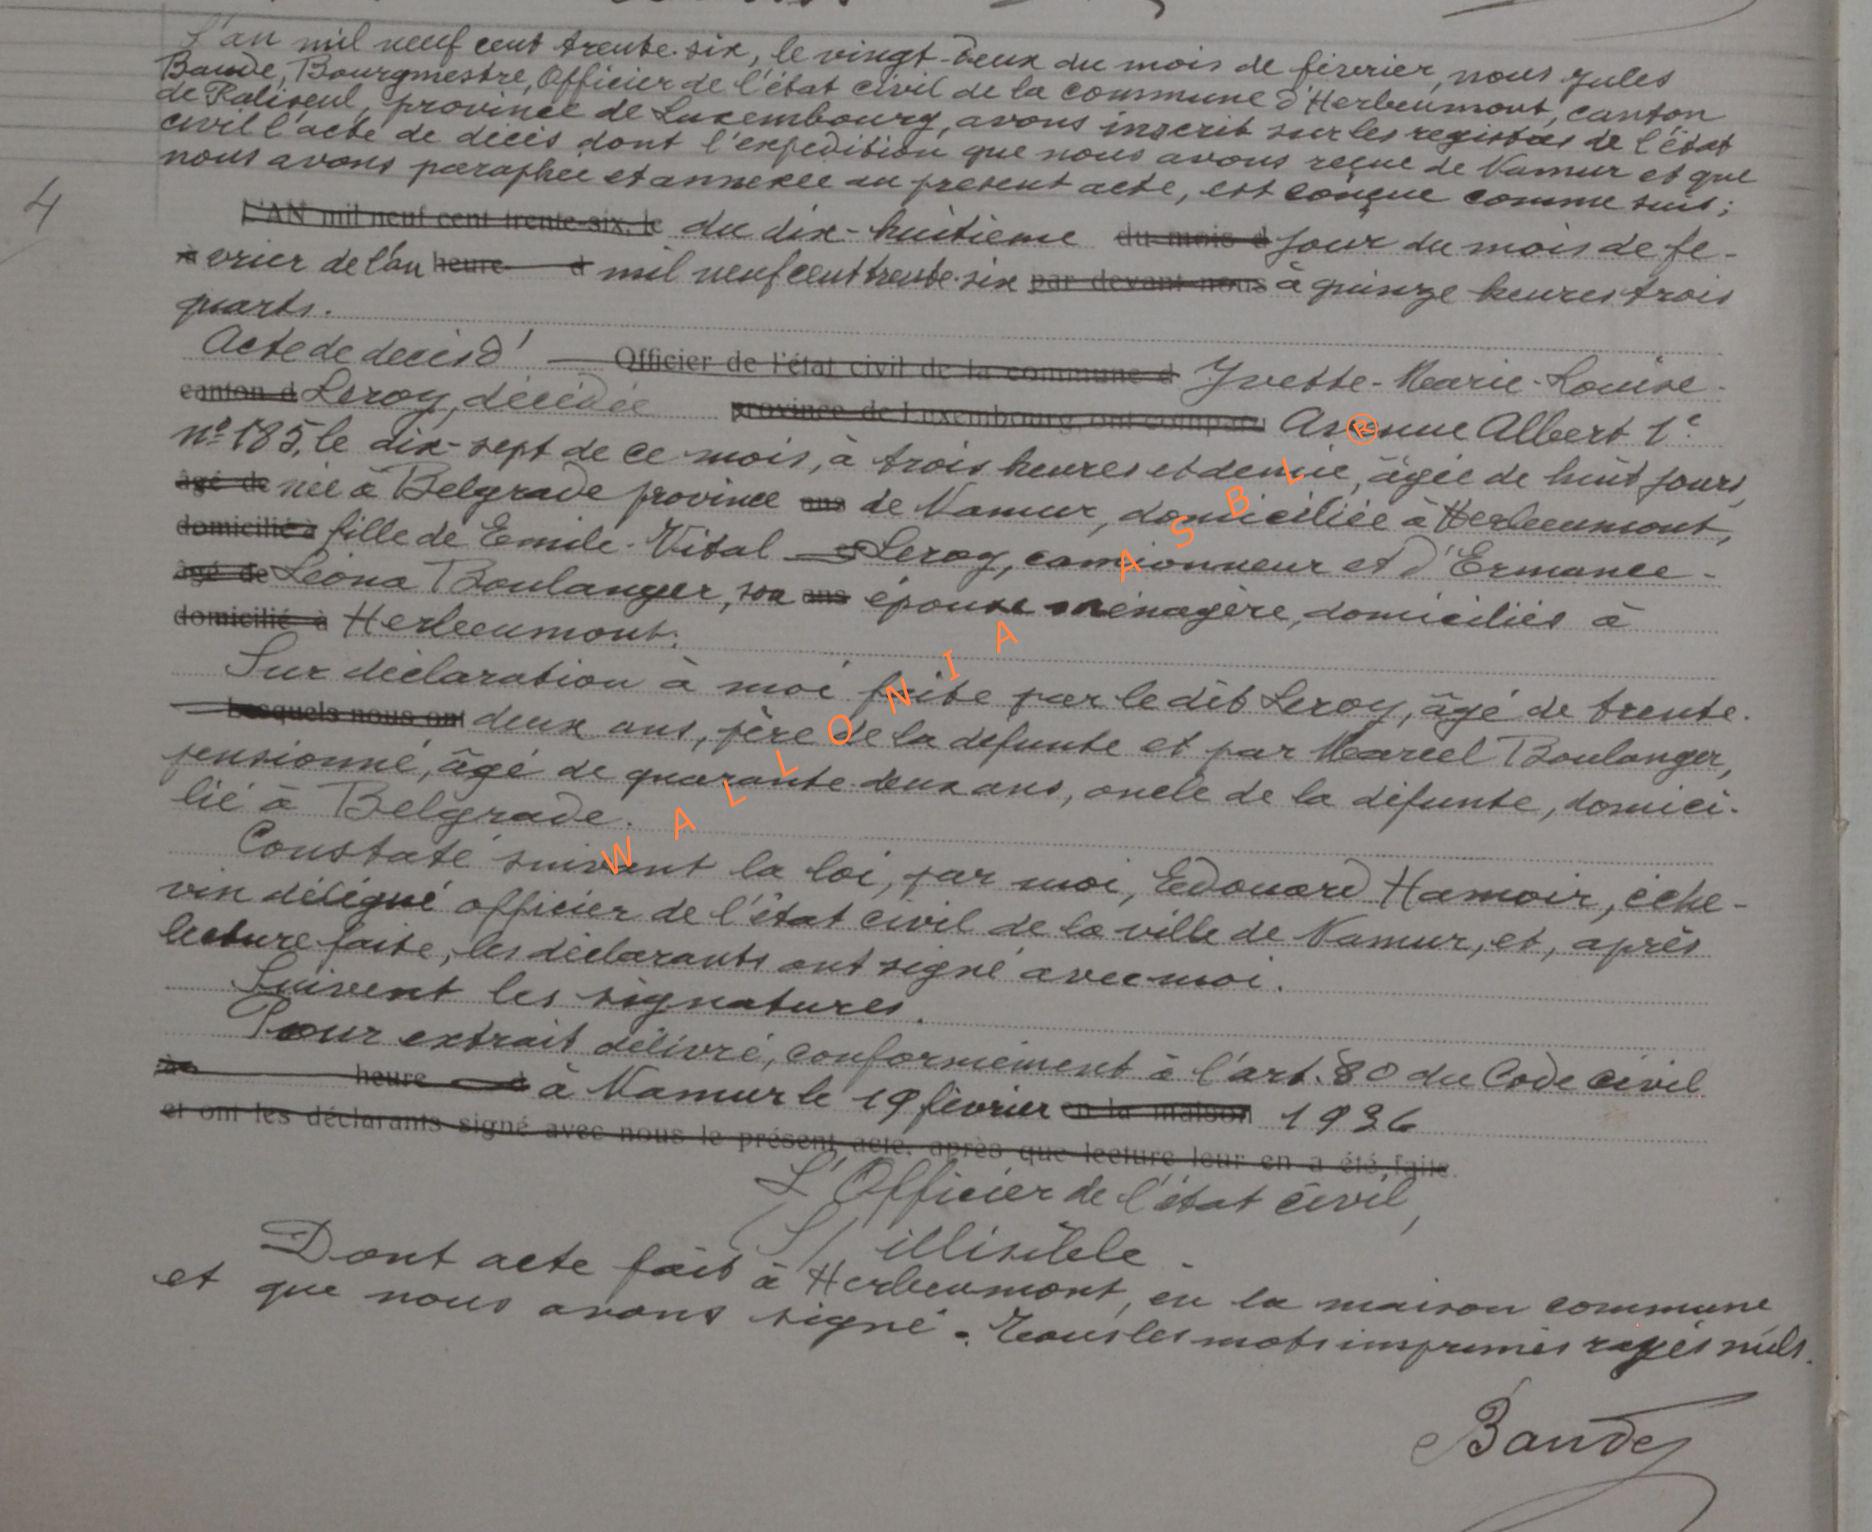 L'an mil neuf cent trente-six, le vingt-deux du mois de février, nous Jules
Baude, Bourgmestre, Officier de l'état civil de la commune d'Herbeumont, canton
de Paliseul, province de Luxembourg, avons inscrit sur les registres de l'état
civil l'acte de décès dont l'expédition que nous avons reçue de Namur et que
nous avons paraphée et annexée au présent acte, est conçue comme suit;
4
L'AN mil neuf cent trente-six, le du dix-huitième du mois d jour du mois de fé-
à vrier de l'an heure d mil neuf cent trente-six par devant nous à quinze heures trois
quarts.
Acte de décès d' Officier de l'état civil de la commune d Yvette-Marie-Louise
canton d Leroy, décédée province de Luxembourg, ont comparu Avenue Albert 1e
nº 185, le dix-sept de ce mois, à trois heures et demie, âgée de huit jours,
âgé de née à Belgrade province ans de Namur, domiciliée à Herbeumont,
domicilié à fille de Emile-Vital Leroy, camionneur et d'Ermance-
âgé de Léona Boulanger, son ans épouse ménagère, domiciliés à
domicilié à Herbeumont.
Sur déclaration à moi faite par le dit Leroy, âgé de trente-
Lesquels nous ont deux ans, père de la défunte et par Marcel Boulanger,
pensionné, âgé de quarante-deux ans, oncle de la défunte, domici-
lié à Belgrade.
Constaté suivant la loi, par moi, Edouard Hamoir, éche-
vin délégué officier de l'état civil de la ville de Namur, et, après
lecture faite, les déclarants ont signé avec moi.
Suivent les signatures.
Pour extrait délivré, conformément à l'art. 80 du Code civil
heure d à Namur le 19 février en la maison 1936
et ont les déclarants signé avec nous le présent acte, après que lecture leur en a été faite.
L'Officier de l'état civil,
S/ illisible.
Dont acte fait à Herbeumont, en la maison commune
et que nous avons signé. Tous les mots imprimés rayés nuls.
Baude
WALLONIA ASBL ®